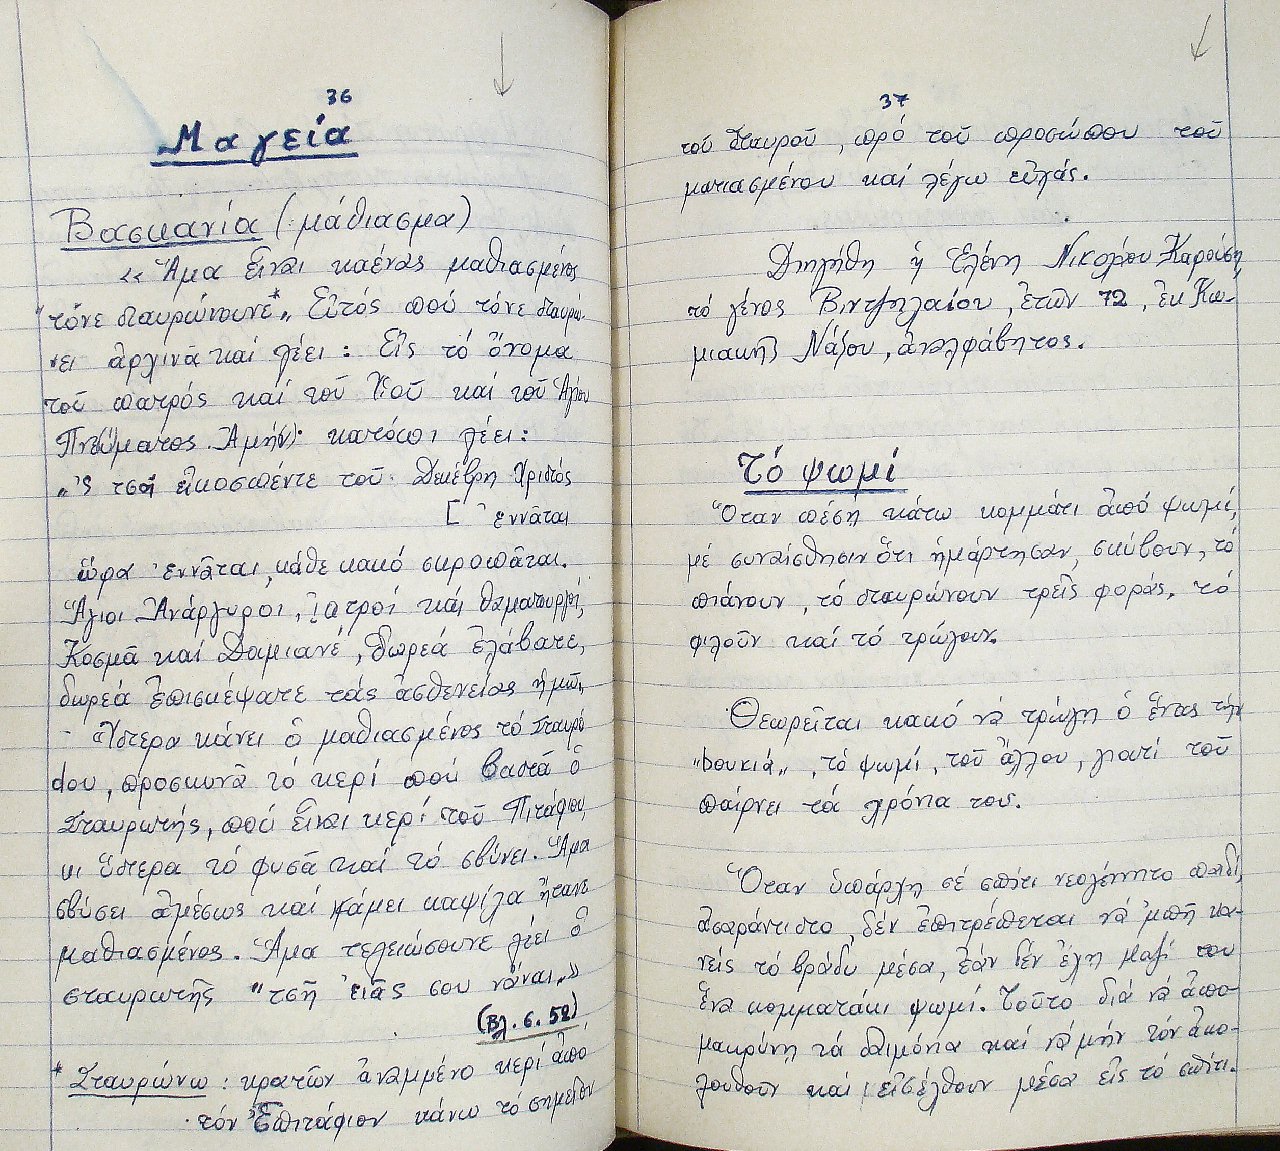 36
Μαγεία
Βασκανία (μάθιασμα)
« Ἅμα εἶναι καένας μαθιασμένος
"τόνε σταυρώνουνε*„ Εὐτός πού τόνε σταυρώ-
νει ἀρχινᾶ καί λέει : Εἰς τό ὄνομα
τοῦ πατρός καί τοῦ Υἱοῦ καί τοῦ Ἁγίου
Πνεύματος. Ἀμήν· κατόπι λέει :
„'ς τσοί εἰκοσιπέντε τοῦ Δεκέβρη Χριστός
[ 'εννᾶται
ὥρα 'εννᾶται, κάθε κακό σκροπᾶται.
Ἅγιοι Ἀνάργυροι, ἰατροί καί θαματουργοί,
Κοσμᾶ καί Δαμιανέ, δωρεά ἐλάβατε,
δωρεά ἐπισκέψατε τάς ἀσθενείας ἡμῶ„
Ὕστερα κάνει ὁ μαθιασμένος τό σταυρό
dου, προσκυνᾶ τό κερί πού βαστᾶ ὁ
σταυρωτής, πού εἶναι κερί τοῦ Πιτάφιου,
κι ὕστερα τό φυσᾶ καί τό σβύνει. Ἅμα
σβύσει ἀμέσως καί κάμει καψίλα ἤτανε
μαθιασμένος. Ἅμα τελειώσουνε λέει ὁ
σταυρωτής "τσῆ 'ειᾶς σου νἆναι„»
(Βλ. 6. 52)
* Σταυρώνω : κρατῶν ἀναμμένο κερί ἀπό
τόν Ἐπιτάφιον κάνω τό σημεῖον
37
τοῦ σταυροῦ, πρό τοῦ προσώπου τοῦ
ματιασμένου καί λέγω εὐχάς.
Διηγήθη ἡ Ἑλένη Νικολάου Καρούση,
τό γένος Βιντζηλαίου, ἐτῶν 72, ἐκ Κω-
μιακῆς Νάξου, ἀναλφάβητος.
Τό ψωμί
Ὅταν πέσῃ κάτω κομμάτι ἀπό ψωμί,
μέ συναίσθησιν ὅτι ἡμάρτησαν, σκύβουν, τό
πιάνουν, τό σταυρώνουν τρεῖς φοράς, τό
φιλοῦν καί τό τρώγουν.
Θεωρεῖται κακό νά τρώγῃ ὁ ἕνας τήν
„bουκιά„, τό ψωμί, τοῦ ἄλλου, γιατί τοῦ
παίρνει τά χρόνια του.
Ὅταν ὑπάρχῃ σέ σπίτι νεογέννητο παιδί,
ἀσαράντιστο, δέν ἐπιτρέπεται νά 'μπῇ κα-
νείς τό βράδυ μέσα, ἐάν δέν ἔχῃ μαζί του
ἕνα κομματάκι ψωμί. Τοῦτο διά νά ἀπο-
μακρύνῃ τά δαιμόνια καί νά μήν τόν ἀκο-
λουθοῦν καί εἰσέλθουν μέσα εἰς τό σπίτι.